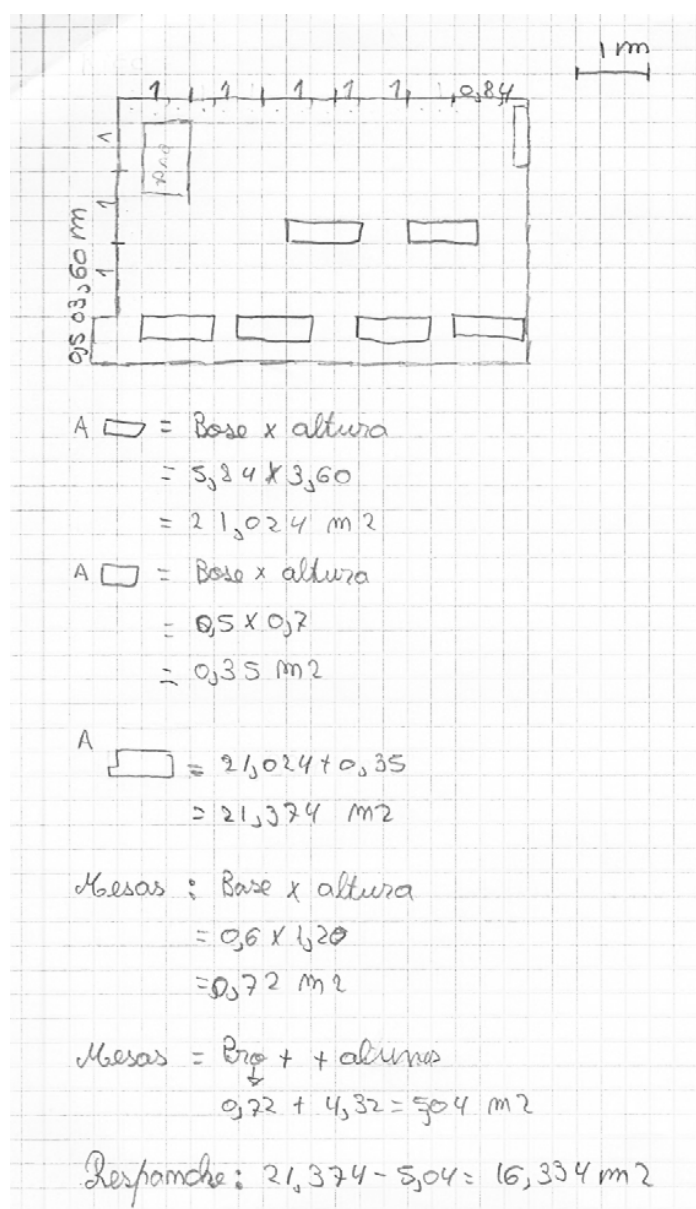 1 m
1 1 1 1 1 0,84
1
Pro
1
1
0,5 03,60 m
A = Base x altura
= 5,84 x 3,60
= 21,024 m2
A = Base x altura
= 0,5 x 0,7
= 0,35 m2
A
= 21,024 + 0,35
= 21,374 m2
Mesas : Base x altura
= 0,6 x 1,20
= 0,72 m2
Mesas = Pro + + alunos
↓
0,72 + 4,32 = 5,04 m2
Respondre : 21,374 - 5,04 = 16,334 m2